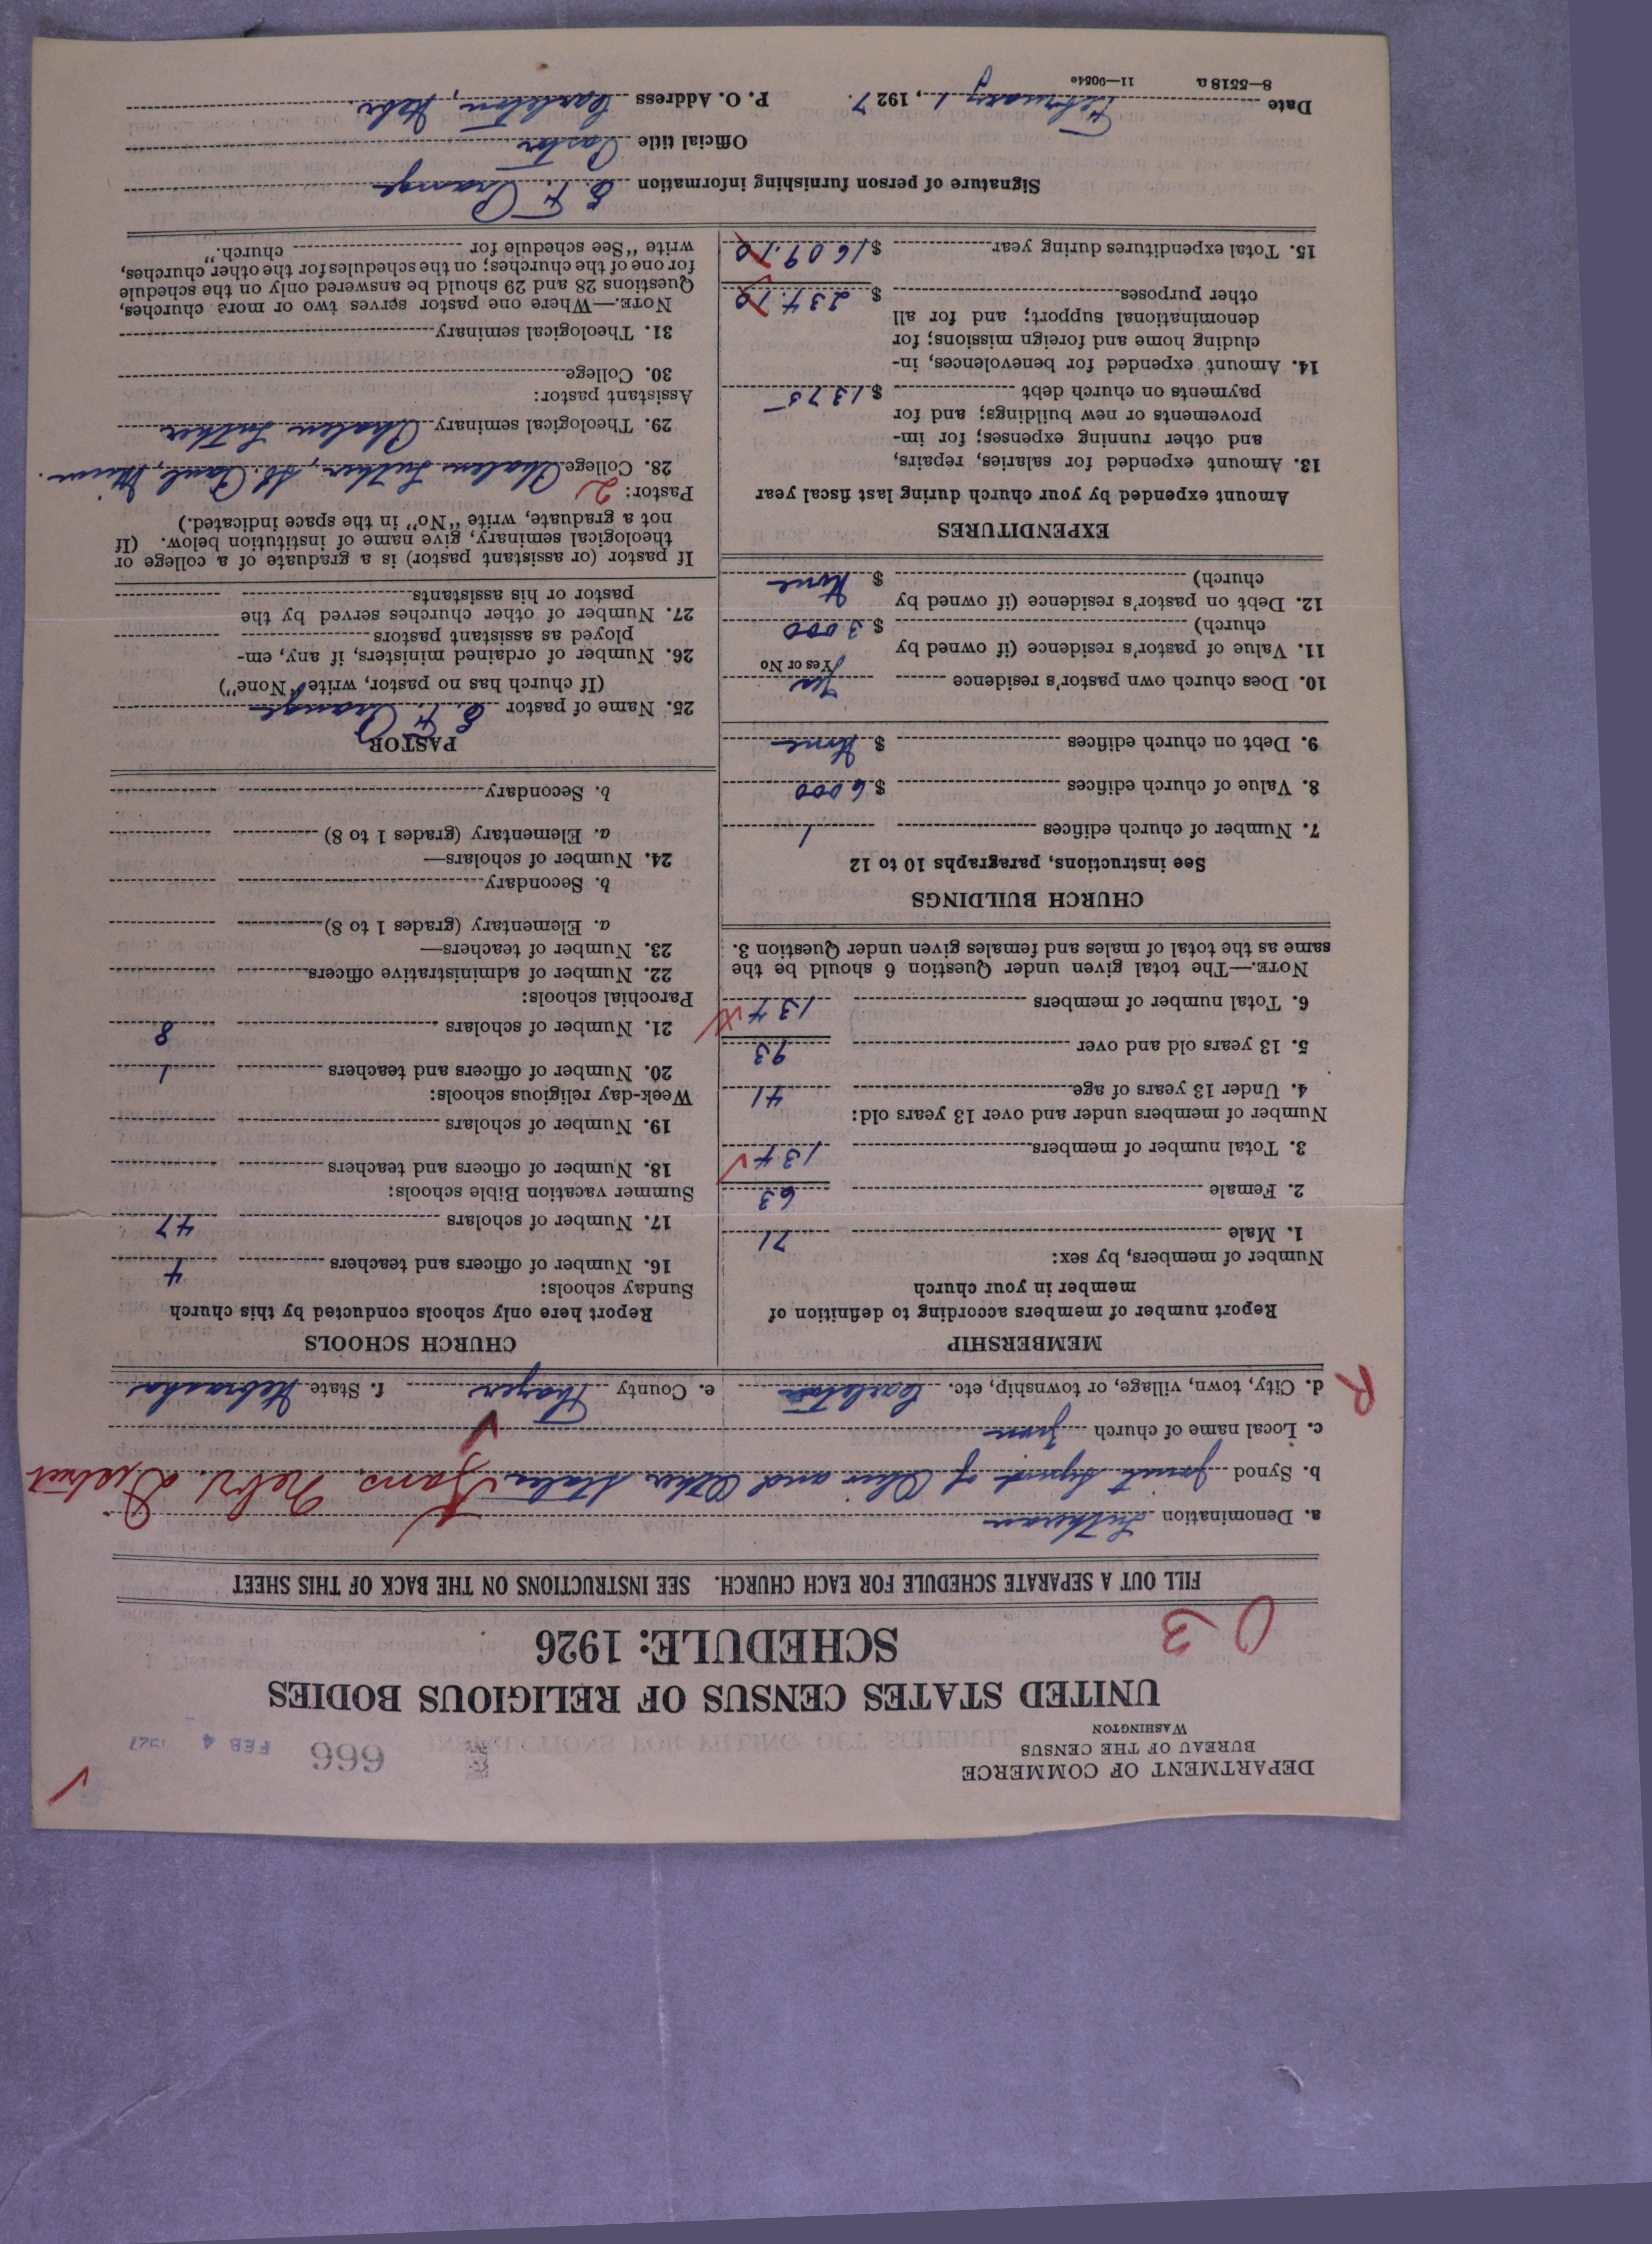 DEPARTMENT OF COMMERCE
BUREAU OF THE CENSUS
WASHINGTON
666
FEB 4 1927
UNITED STATES CENSUS OF RELIGIOUS BODIES
SCHEDULE: 1926
03
FILL OUT A SEPARATE SCHEDULE FOR EACH CHURCH. SEE INSTRUCTIONS ON THE BACK OF THIS SHEET
a. Denomination Lutheran
b. Synod Joint Synod of Ohio and Other States Kans, Nebr. District
c. Local name of church
R
d. City, town, village, or township, etc. Carleton e. County Thayer f. State Nebraska
MEMBERSHIP
Report number of members according to definition of
member in your church
Number of members, by sex:
1. Male 71
2. Female 63
3. Total number of members 134
Number of members under and over 13 years old:
4. Under 13 years of age 41
5. 13 years old and over 93
6. Total number of members 134
NOTE.—The total given under Question 6 should be the
same as the total of males and females given under Question 3.
CHURCH BUILDINGS
See instructions, paragraphs 10 to 12
7. Number of church edifices 1
8. Value of church edifices $ 6000
9. Debt on church edifices $ None
10. Does church own pastor's residence Yes
Yes or No
11. Value of pastor's residence (if owned by
church) $ 3000
12. Debt on pastor's residence (if owned by
church) $ None
EXPENDITURES
Amount expended by your church during last fiscal year
13. Amount expended for salaries, repairs,
and other running expenses; for im-
provements or new buildings; and for
payments on church debt $ 1375
14. Amount expended for benevolences, in-
cluding home and foreign missions; for
denominational support; and for all
other purposes $ 234.10
15. Total expenditures during year $ 1609.10
CHURCH SCHOOLS
Report here only schools conducted by this church
Sunday schools:
16. Number of officers and teachers 4
17. Number of scholars 47
Summer vacation Bible schools:
18. Number of officers and teachers
19. Number of scholars
Week-day religious schools:
20. Number of officers and teachers 1
21. Number of scholars 8
Parochial schools:
22. Number of administrative officers
23. Number of teachers—
a. Elementary (grades 1 to 8)
b. Secondary
24. Number of scholars—
a. Elementary (grades 1 to 8)
b. Secondary
PASTOR
25. Name of pastor E. F.
(If church has no pastor, write "None")
26. Number of ordained ministers, if any, em-
ployed as assistant pastors
27. Number of other churches served by the
pastor or his assistants
If pastor (or assistant pastor) is a graduate of a college or
theological seminary, give name of institution below. (If
not a graduate, write "No" in the space indicated.)
Pastor: 2
28. College Luther, St. Paul, Minn.
29. Theological seminary Luther
Assistant pastor:
30. College
31. Theological seminary
NOTE.—Where one pastor serves two or more churches,
Questions 28 and 29 should be answered only on the schedule
for one of the churches; on the schedules for the other churches,
write "See schedule for church."
Signature of person furnishing information E. F.
Official title Pastor
Date February 1, 1927. P. O. Address Carleton, Nebr.
8—5518 a 11—9054e